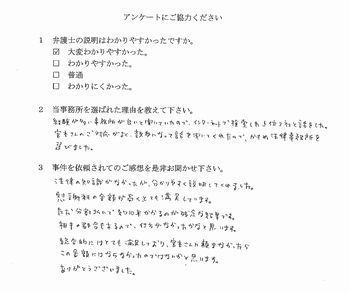 アンケートにご協力ください
1 弁護士の説明はわかりやすかったですか。
☑ 大変わかりやすかった。
□ わかりやすかった。
□ 普通
□ わかりにくかった。
2 当事務所を選ばれた理由を教えて下さい。
経験が多い事務所が良いと聞いていたので、インターネットで検索した
宮本さんのご対応がよく、親身になって話を聞いてくれたので、かがやき法律事務所を
選びました。
3 事件を依頼されてのご感想を是非お聞かせ下さい。
法律の知識がなかったが、分かりやすく説明してくれました。
慰謝料の金額が高くとても満足しています。
ただ
相手の都合もあるので、仕方がなかったかなと思います。
総合的にはとても満足しており、宮本さんに頼まなかったら
この金額にはならなかったのではないかと思います。
ありがとうございました。